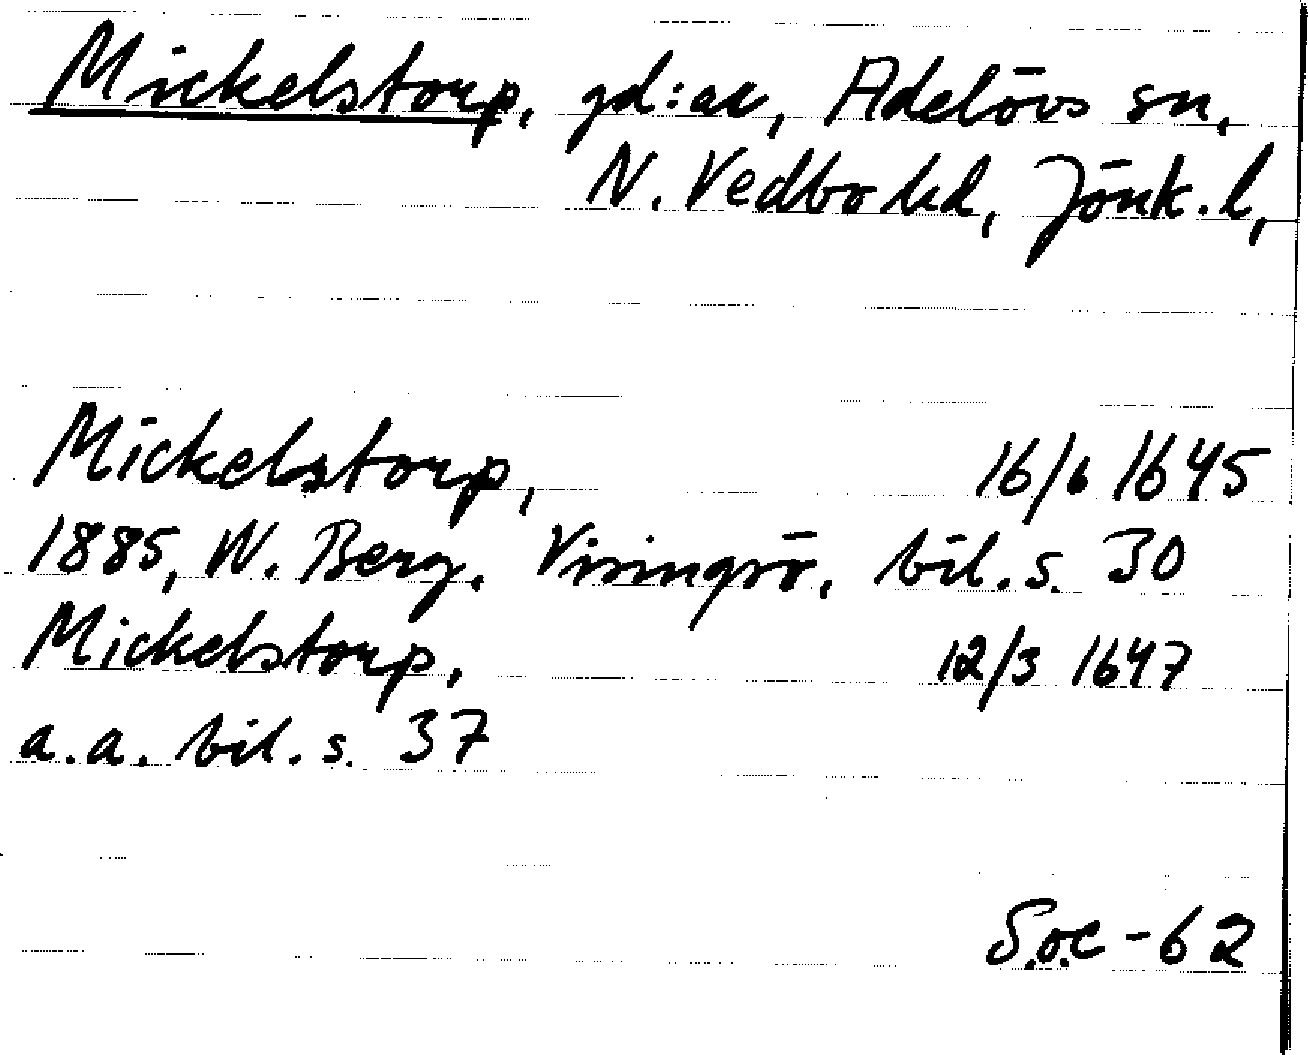 Mickelstorp, gd:ar, Adelövs sn,
N. Vedbo hd, Jönk. l,
Mickelstorp, 16/6 1645
1885, W. Berg. Visingsö, bil. s. 30
Mickelstorp, 12/3 1647
a.a. bil. s. 37
S.o.C -62